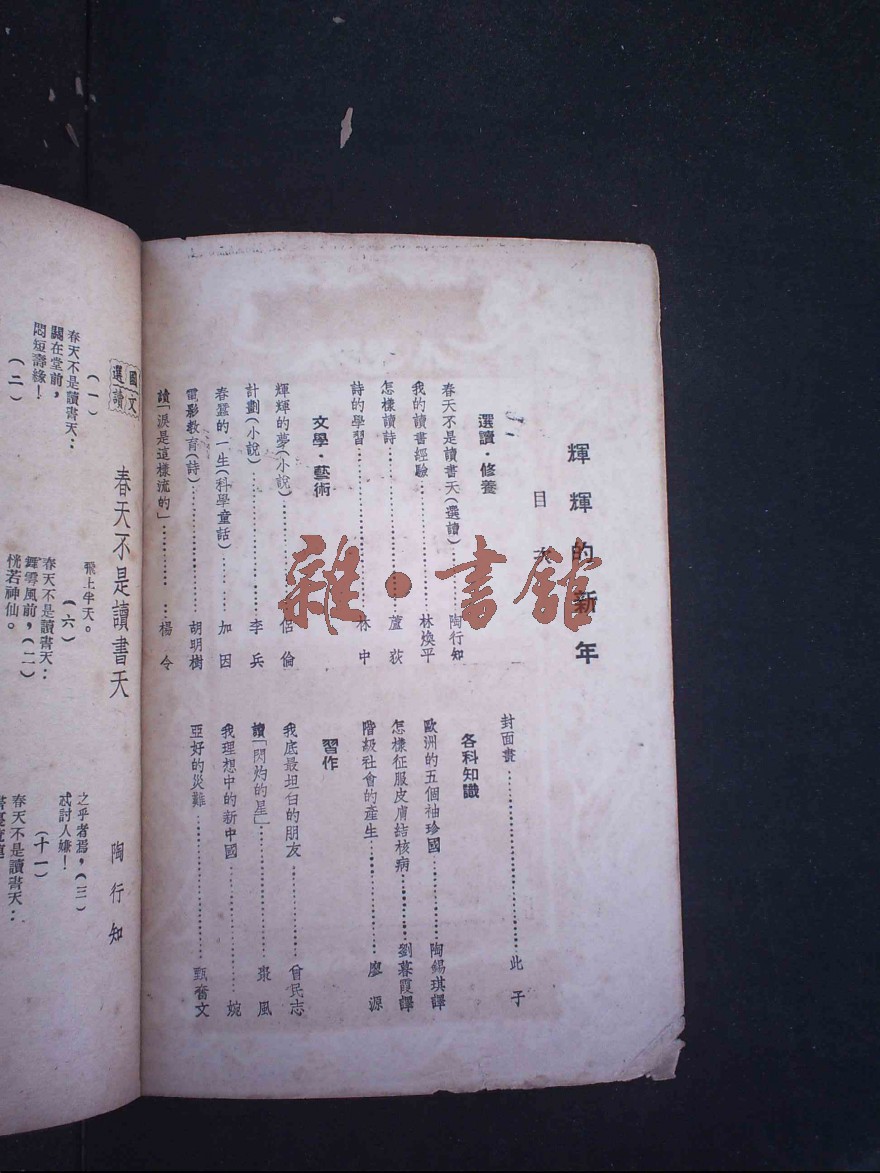 輝輝的新年
目次
選讀·修養
春天不是讀書天(選讀)……陶行知
我的讀書經驗……林煥平
怎樣讀詩……蘆荻
詩的學習……林中
文學·藝術
輝輝的夢(小說)……侶倫
計劃(小說)……李兵
春蠶的一生(科學童話)……加因
電影教育(詩)……胡明樹
讀「淚是這樣流的」……楊令
封面畫……此子
各科知識
歐洲的五個袖珍國……陶錫琪譯
怎樣征服皮膚結核病……劉暮霞譯
階級社會的產生……廖源
習作
我底最坦白的朋友……曾民志
讀「閃灼的星」……棗風
我理想中的新中國……婉
亞好的災難……甄奮文
雜·書館
國文選讀
春天不是讀書天
陶行知
(一)
春天不是讀書天:
關在堂前,
悶短壽緣!
(二)
飛上半天。
(六)
春天不是讀書天:
舞雲風前,(二)
恍若神仙。
之乎者焉,(三)
忒討人嫌!
(十一)
春天不是讀書天: